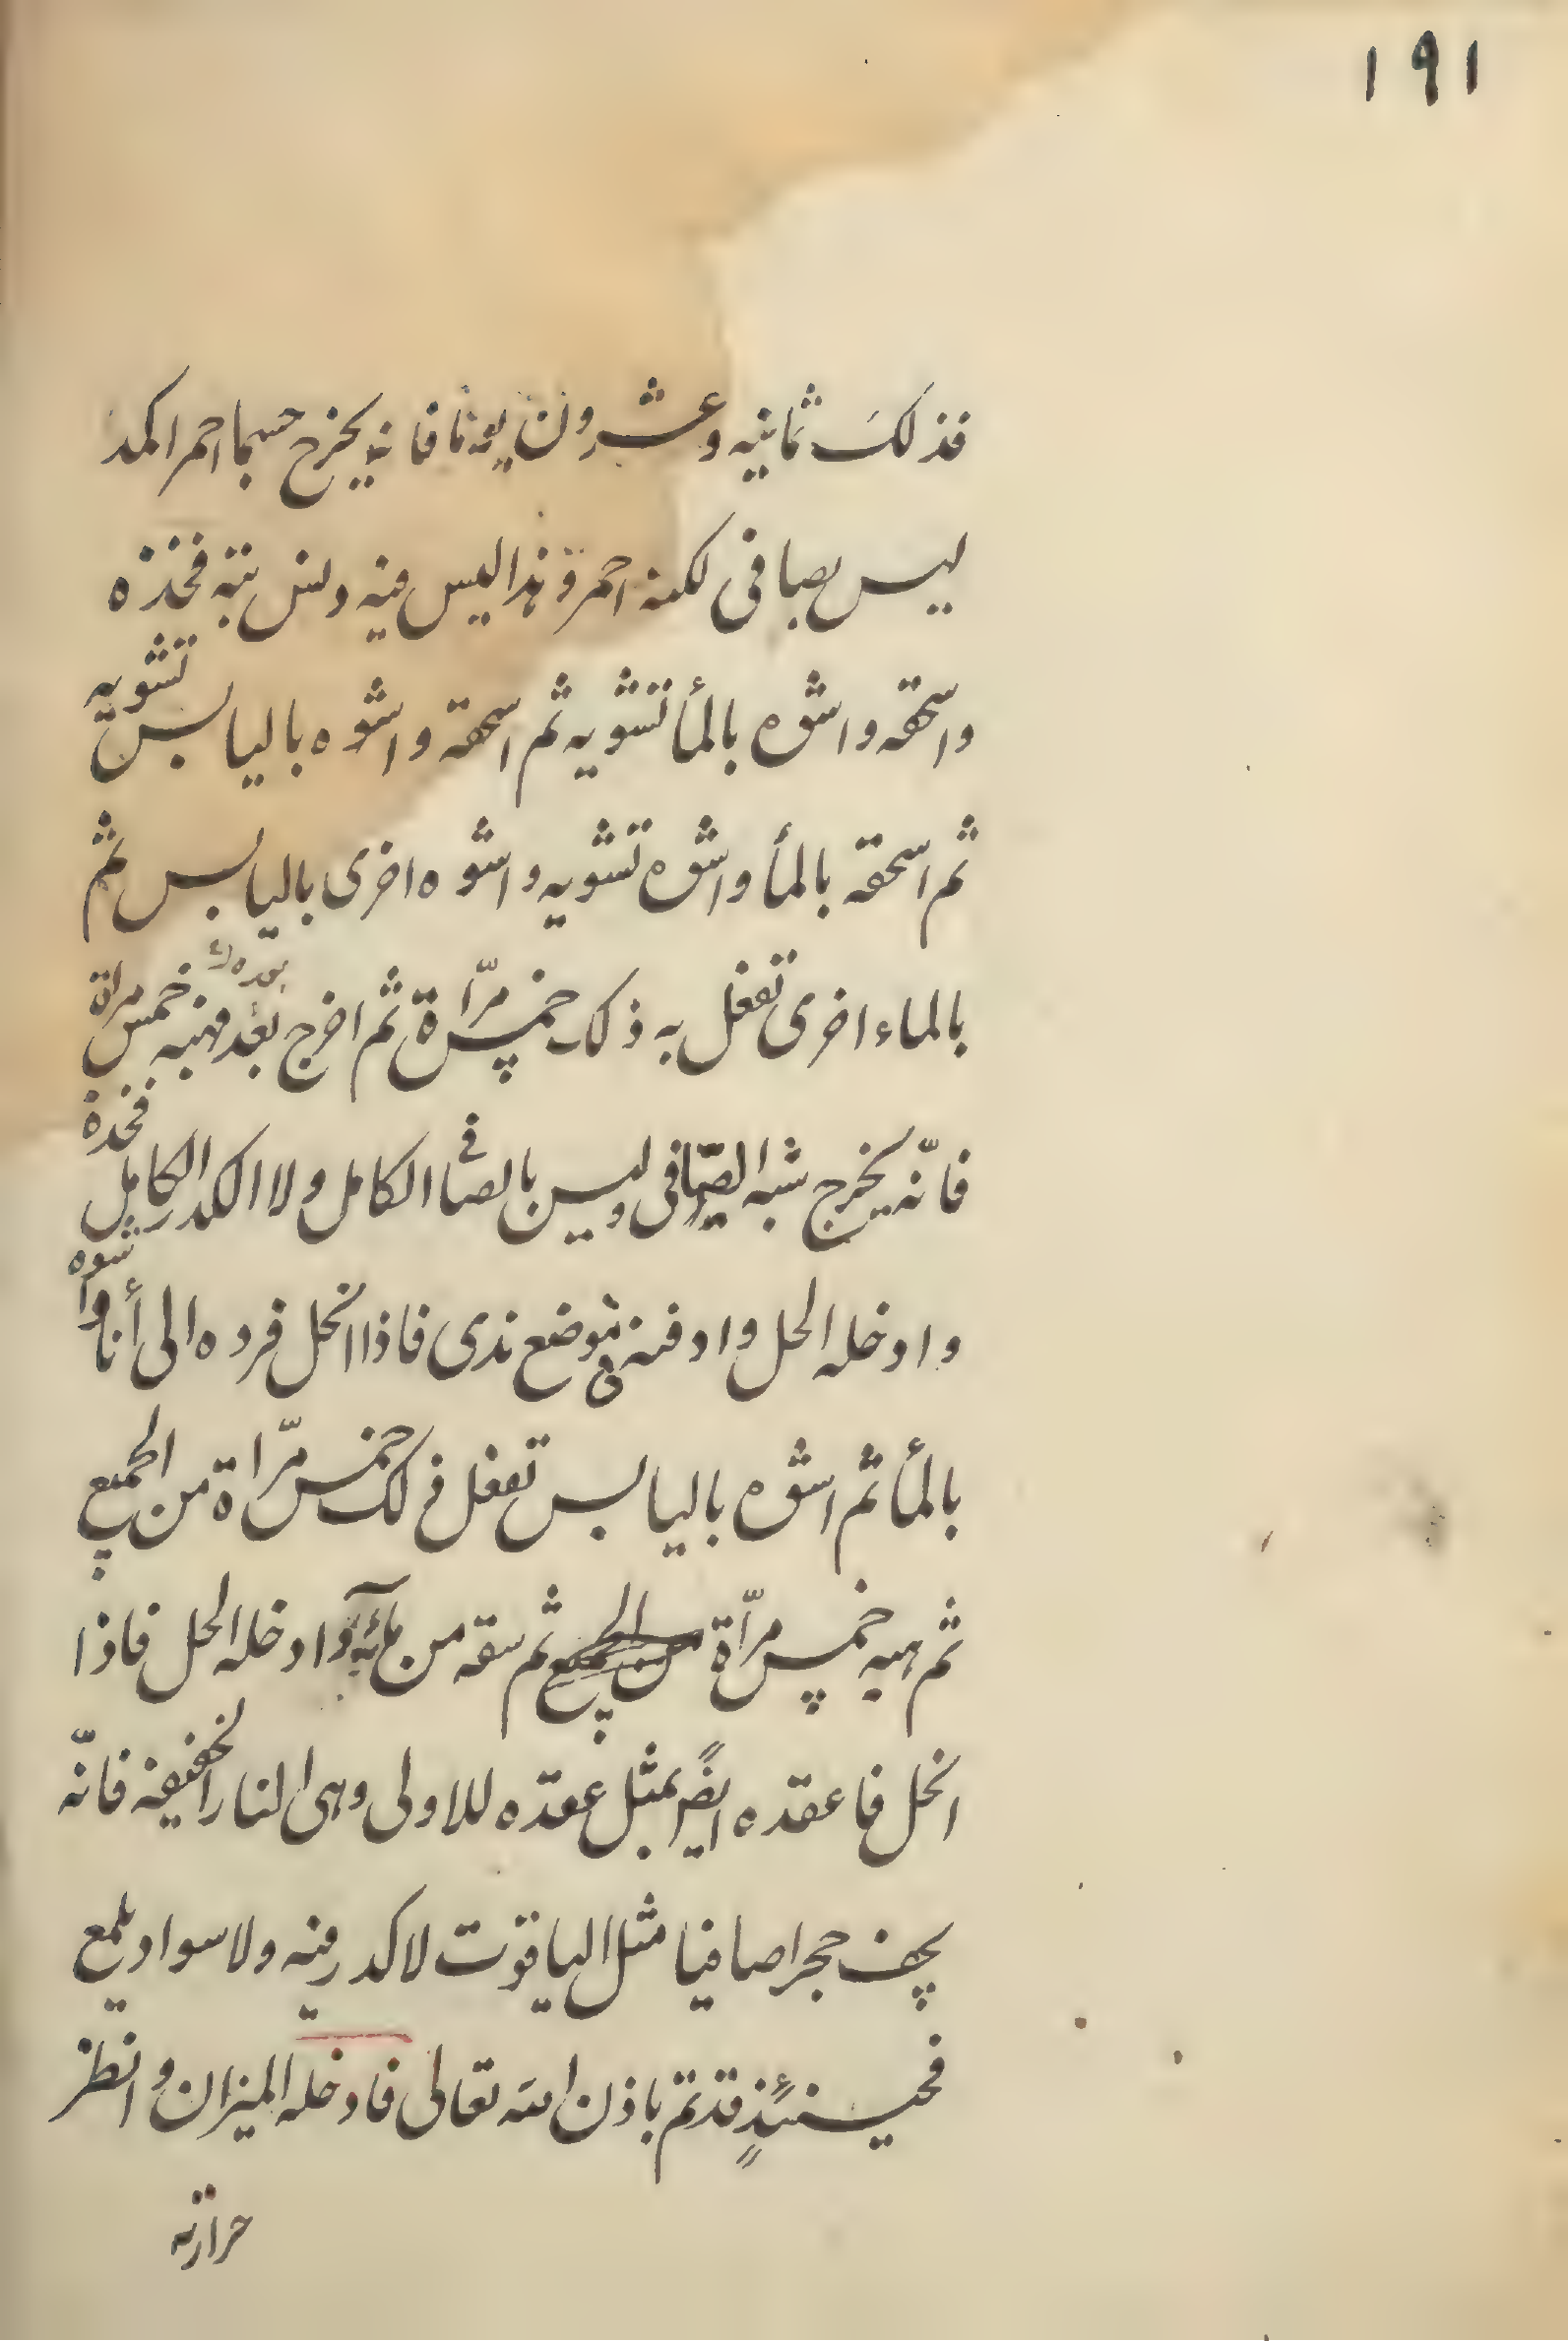 ١٩١
فذلك ثمانيه وعشرون يوما فانه يخرج جسما احمر اكمد
ليس بصافى لكنه احمر وهذا ليس فيه دنس بته فخذه
واسحقه واشوه بالمأ تشويه ثم اسحقه واشوه باليابس تشويه
ثم اسحقه بالمأ واشوه تشويه واشوه اخرى باليابس ثم
بالماء اخرى تفعل به ذلك خمس مرّاة ثم اخرج بعد خمس مراة
فانّه يخرج شبه الصّافى وليس بالصافى الكامل ولا الكدر الكامل فخذه
وادخله الحل وادفنه فى موضع ندى فاذا انحل فرده الى أنا واشوه
بالمأ ثم اشوه باليابس تفعل ذلك خمس مرّاة من الجميع
ثم هبه خمس مرّاة من الجميع ثم سقه من مائه وادخله الحل فاذا
انحل فاعقده ايضاً بمثل عقده للاولى وهى النار الخفيفة فانّه
يجف حجرا صافيا مثل الياقوت لا كدر فيه ولا سواد يلمع
فحينئذٍ قد تم باذن الله تعالى فادخله الميزان وانظر
حرارته